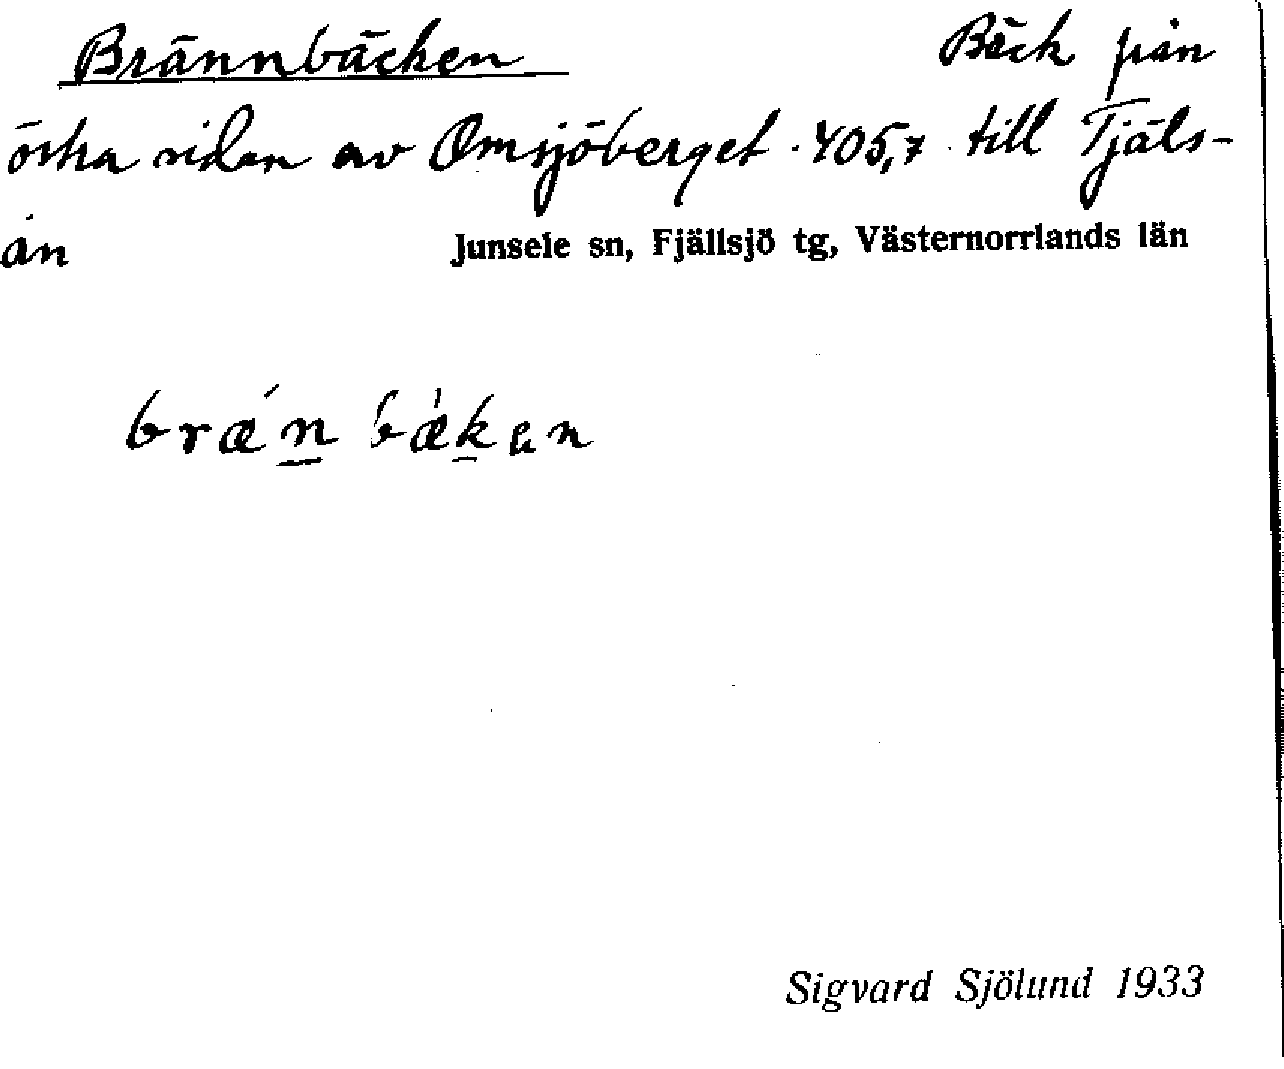 Brännbäcken Bäck från
östra sidan av Omsjöberget · 405,7 · till Tjäls-
ån
Junsele sn, Fjällsjö tg, Västernorrlands län
brǽn̲ bæ̀k̲en
Sigvard Sjölund 1933